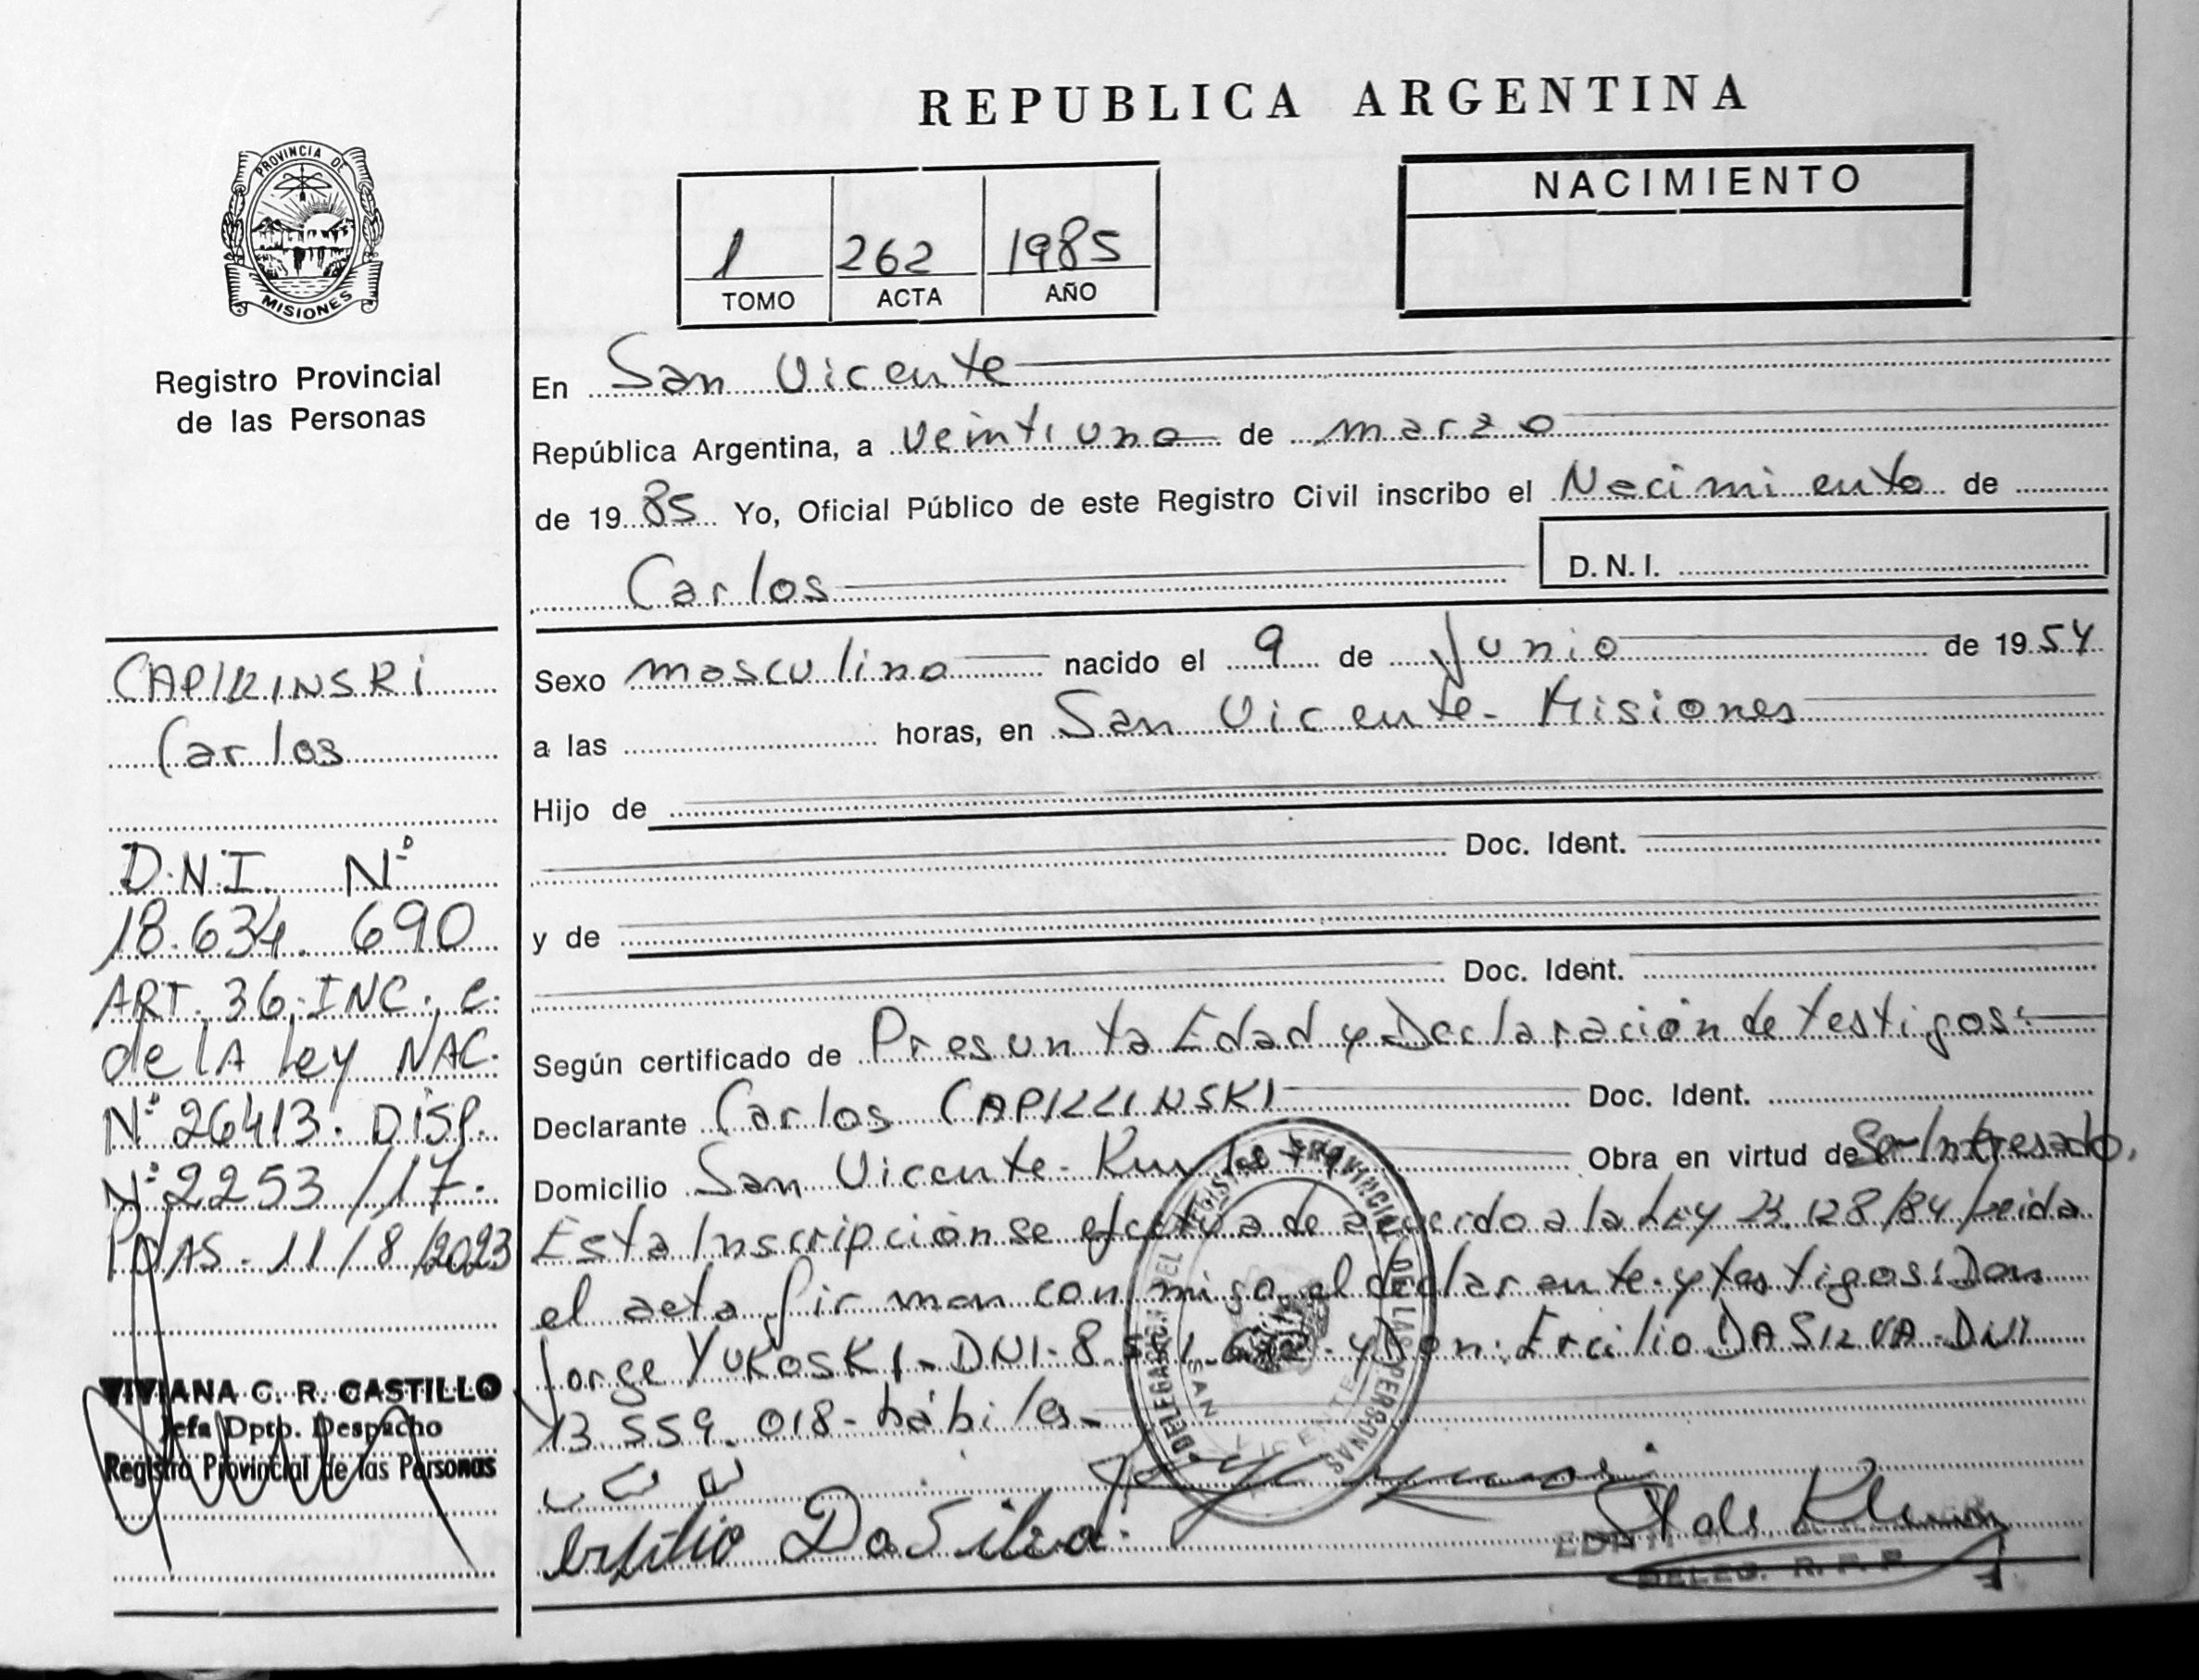 REPUBLICA ARGENTINA
PROVINCIA DE
MISIONES
Registro Provincial
de las Personas
1 262 1985
TOMO ACTA AÑO
NACIMIENTO
En San Vicente
República Argentina, a veintiuno de marzo
de 1985 Yo, Oficial Público de este Registro Civil inscribo el Nacimiento de
Carlos
D.N.I.
Sexo masculino nacido el 9 de Junio de 1954
a las horas, en San Vicente - Misiones
Hijo de
Doc. Ident.
y de
Doc. Ident.
Según certificado de Presunta Edad y Declaración de testigos:
Declarante Carlos CAPILLINSKI Doc. Ident.
Domicilio San Vicente - Obra en virtud de Ser-Interesado.
Esta Inscripción se efectua de acuerdo a la LEY 23.128/84 Leida
el acta firman conmigo el declarante y testigos: Don
Jorge YUKOSKI - DNI - 8 y Don: Ercilio DA SILVA - DNI
13.559.018 - hábiles -
Ersilio Da Silva.
DELEG. R. P. P.
DELEGACION DEL REGISTRO PROVINCIAL DE LAS PERSONAS
SAN VICENTE
CAPILLINSKI
Carlos
D.N.I. Nº
18.634.690
ART. 36. INC. C.
de la Ley NAC.
Nº 26413. DISP.
Nº 2253/17.
PDAS. 11/8/2023
VIVIANA C. R. CASTILLO
Jefa Dpto. Despacho
Registro Provincial de las Personas